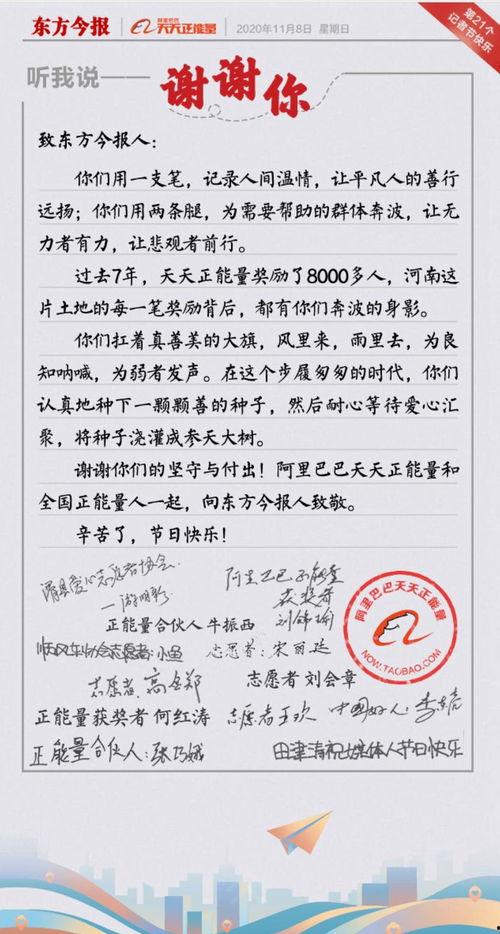 东方今报 阿里巴巴 天天正能量 2020年11月8日 星期日
第21个
记者节快乐
听我说——谢谢你
致东方今报人：
你们用一支笔，记录人间温情，让平凡人的善行
远扬；你们用两条腿，为需要帮助的群体奔波，让无
力者有力，让悲观者前行。
过去7年，天天正能量奖励了8000多人，河南这
片土地的每一笔奖励背后，都有你们奔波的身影。
你们扛着真善美的大旗，风里来，雨里去，为良
知呐喊，为弱者发声。在这个步履匆匆的时代，你们
认真地种下一颗颗善的种子，然后耐心等待爱心汇
聚，将种子浇灌成参天大树。
谢谢你们的坚守与付出！阿里巴巴天天正能量和
全国正能量人一起，向东方今报人致敬。
辛苦了，节日快乐！
滑县爱心志愿者协会
阿里巴巴正能量
获奖者
刘锦瑜
正能量合伙人 牛振西
志愿者：宋丽廷
志愿者 高全郑
志愿者 刘会章
正能量获奖者 何红涛
志愿者王欢
中国好人：李东亮
正能量合伙人：张巧娥
田津涛祝媒体人节日快乐
阿里巴巴天天正能量
NOW.TAOBAO.COM